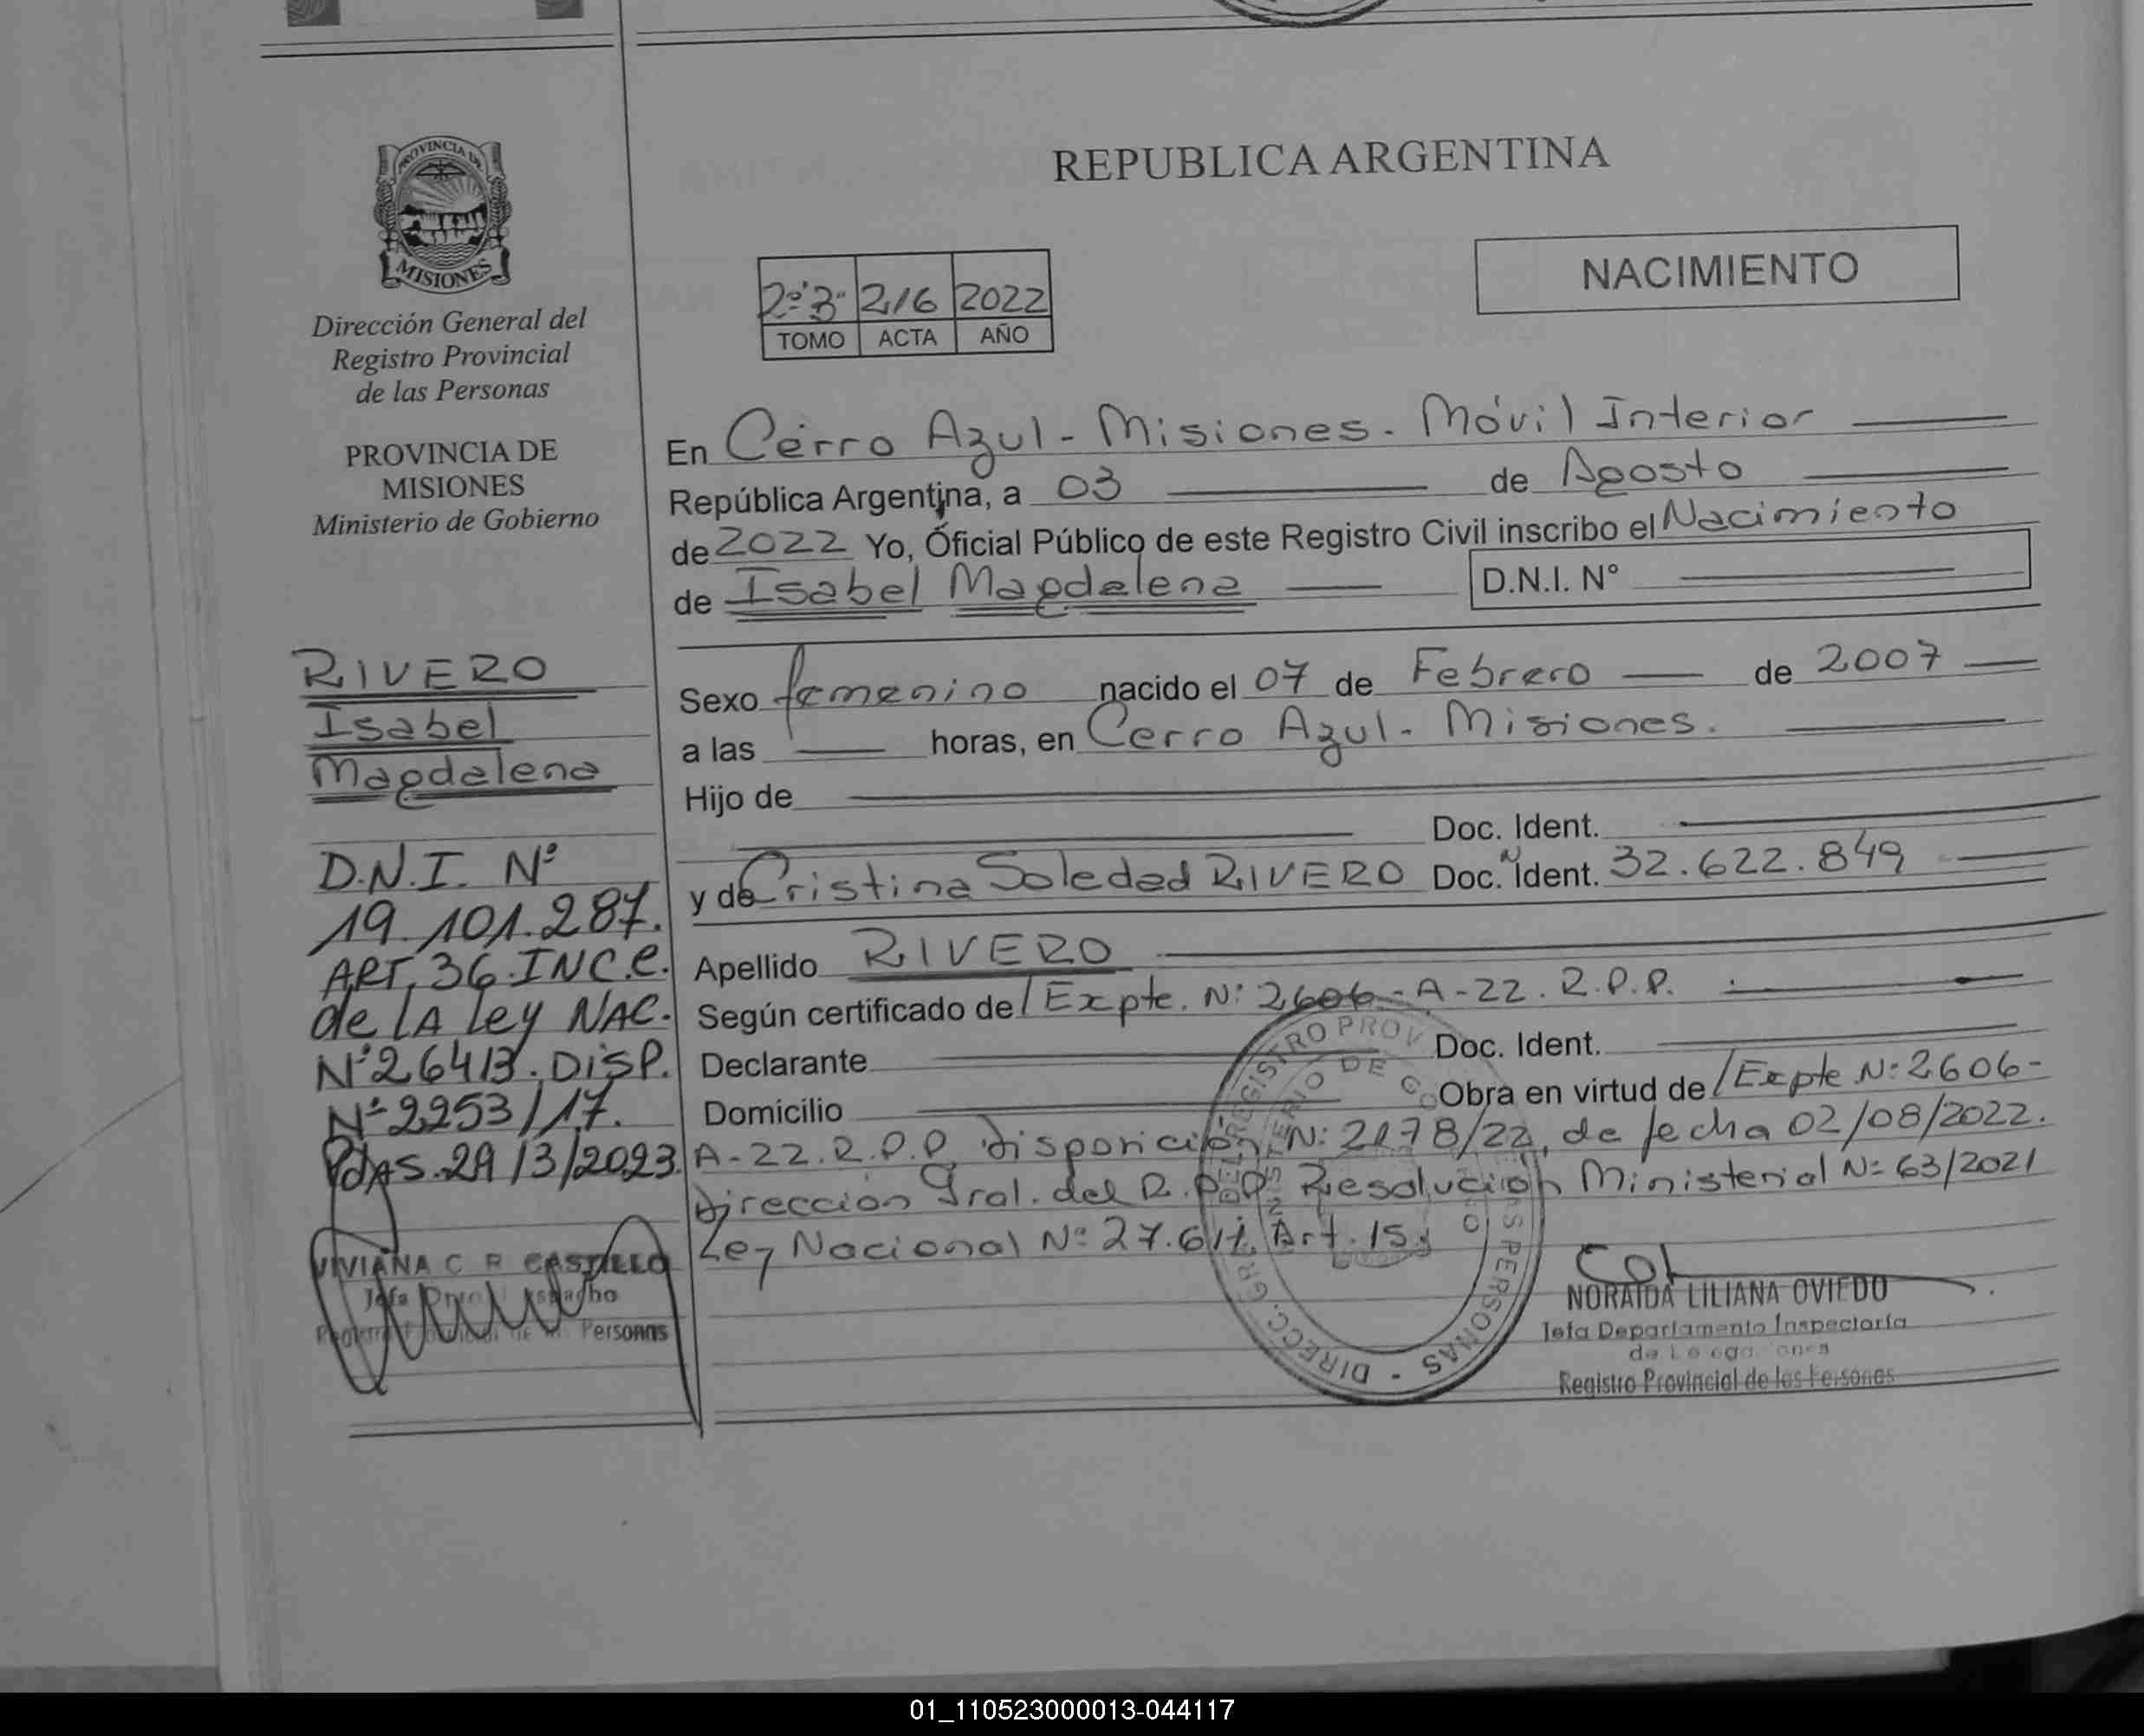 PROVINCIA DE
MISIONES
Dirección General del
Registro Provincial
de las Personas
PROVINCIA DE
MISIONES
Ministerio de Gobierno
RIVERO
Isabel
Magdalena
D.N.I. Nº
19.101.287.
ART. 36. INC. e.
de LA Ley NAC.
Nº 26413. DISP.
Nº 2253/17.
Pdas. 29/3/2023.
VIVIANA C. R. CASTILLO
Jefa
Personas
REPUBLICA ARGENTINA
NACIMIENTO
2º"3" 216 2022
TOMO ACTA AÑO
En Cerro Azul - Misiones. Móvil Interior
República Argentina, a 03 de Agosto
de 2022 Yo, Oficial Público de este Registro Civil inscribo el Nacimiento
de Isabel Magdalena D.N.I. N°
Sexo femenino nacido el 07 de Febrero de 2007
a las horas, en Cerro Azul - Misiones.
Hijo de
Doc. Ident.
y de Cristina Soledad RIVERO Doc. Ident. 32.622.849
Apellido RIVERO
Según certificado de / Expte. Nº 2606 - A-22. R.P.P.
Declarante Doc. Ident.
Domicilio Obra en virtud de / Expte Nº 2606-
A-22. R.P.P. Disposición Nº 2178/22, de fecha 02/08/2022.
Dirección Gral. del R.P.P. Resolución Ministerial Nº 63/2021
Ley Nacional Nº 27.611, Art. 15.
NORAIDA LILIANA OVIEDO
Jefa Departamento Inspectoría
Registro Provincial de las Personas
01_110523000013-044117